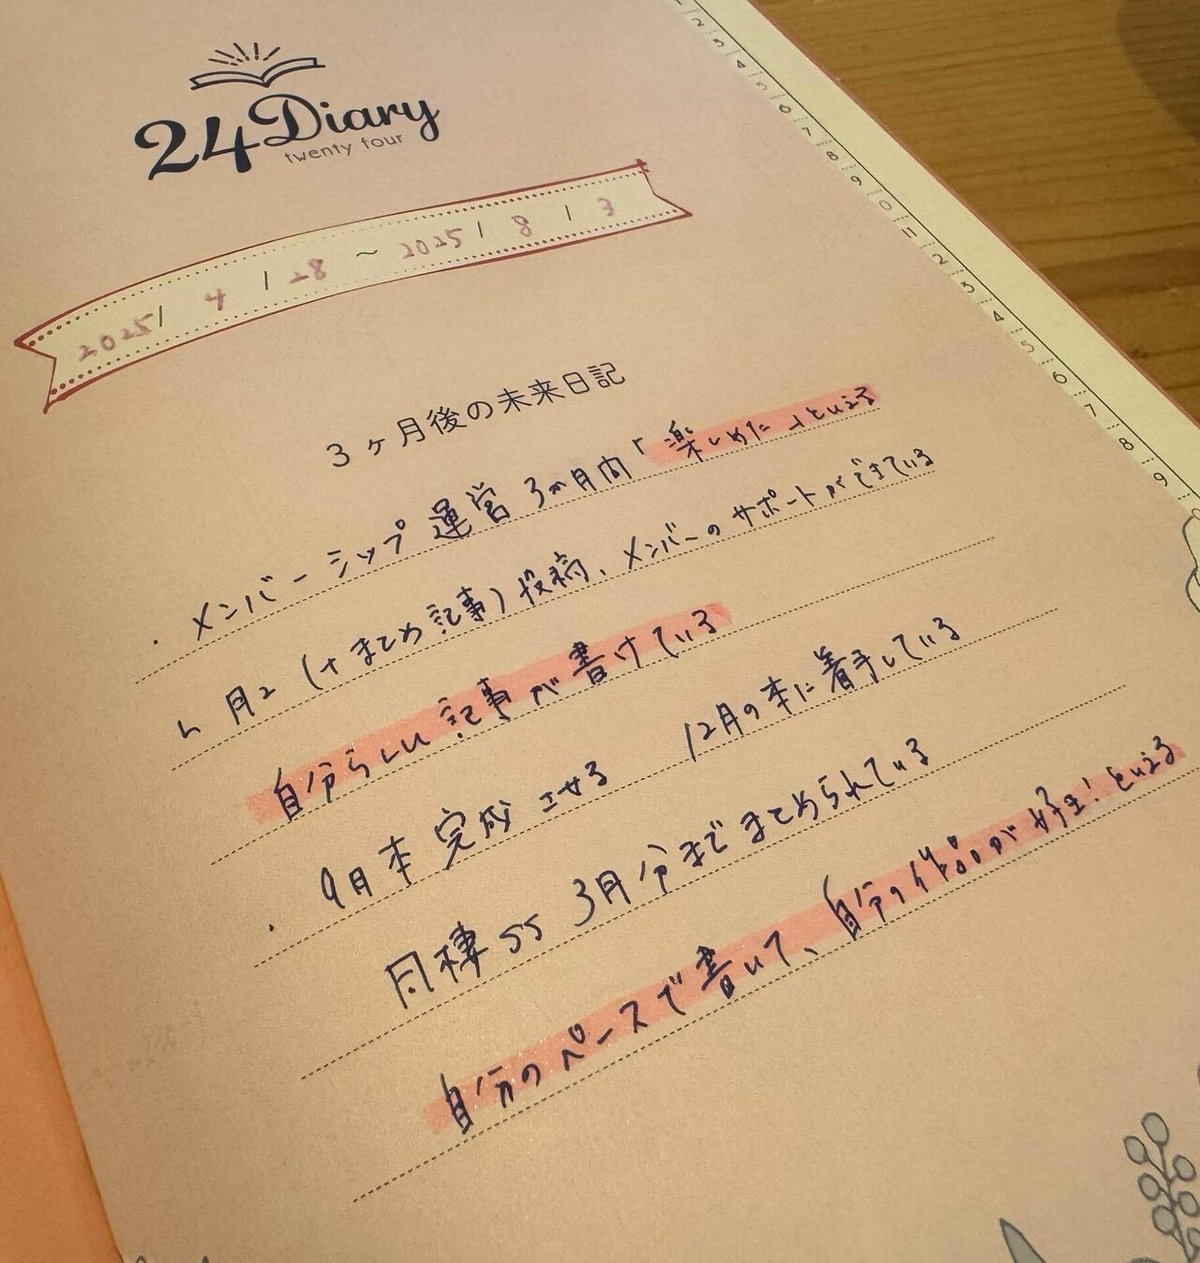 24 Diary
twenty four
2025 / 4 / 28 ～ 2025 / 8 / 3
3ヶ月後の未来日記
・メンバーシップ運営 3か月間「楽しめた」といえる
↳ 月2(+まとめ記事)投稿、メンバーのサポートができている
自分らしい記事が書けている
・9月本 完成させる 12月の本に着手している
同棲SS 3月分までまとめられている
自分のペースで書いて、自分の作品が好き!といえる
1
2
3
4
5
6
7
8
9
0
11
2
3
4
5
6
7
8
9